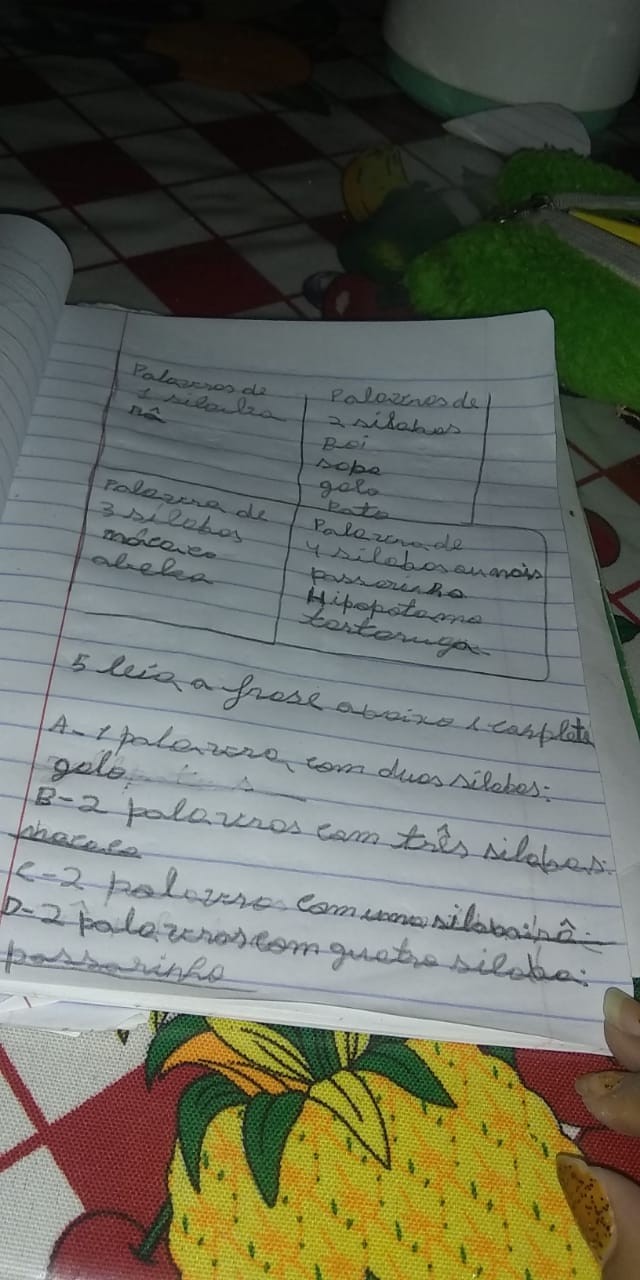 Palavras de
1 silaba
Rã
Palavras de
2 silabas
Boi
sapo
galo
Pato
Palavra de
3 silabas
macaco
abelea
Palavra de
4 silabas ou mais
passarinho
Hipopotamo
tartaruga
5 leia a frase abaixo e complete
A-1 palavra com duas silabas:
galo
B-2 palavras com três silabas:
macaco
C-2 palavra com uma silaba:
D-2 palavras com quatro silaba:
passarinho